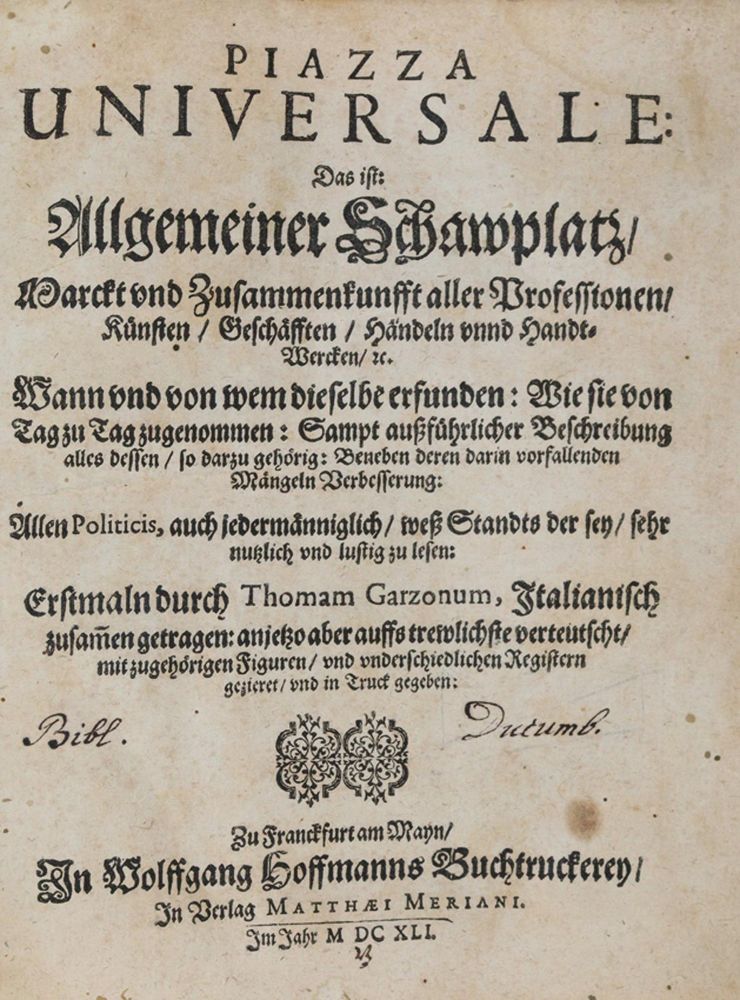 PIAZZA
UNIVERSALE:
Das ist:
Allgemeiner Schawplatz/
Marckt vnd Zusammenkunfft aller Professionen/
Künsten / Geschäfften / Händeln vnnd Handt-
Wercken/ ꝛc.
Wann vnd von wem dieselbe erfunden: Wie sie von
Tag zu Tag zugenommen: Sampt außführlicher Beschreibung
alles dessen / so darzu gehörig: Beneben deren darin vorfallenden
Mängeln Verbesserung:
Allen Politicis, auch jedermänniglich/ weß Standts der sey/ sehr
nutzlich vnd lustig zu lesen:
Erstmaln durch Thomam Garzonum, Italianisch
zusam̃en getragen: anjetzo aber auffs trewlichste verteutscht/
mit zugehörigen Figuren/ vnd vnderschiedlichen Registern
gezieret/ vnd in Truck gegeben:
Bibl. Dutumb.
Zu Franckfurt am Mayn/
In Wolffgang Hoffmanns Buchtruckerey/
In Verlag MATTHÆI MERIANI.
Im Jahr M DC XLI.